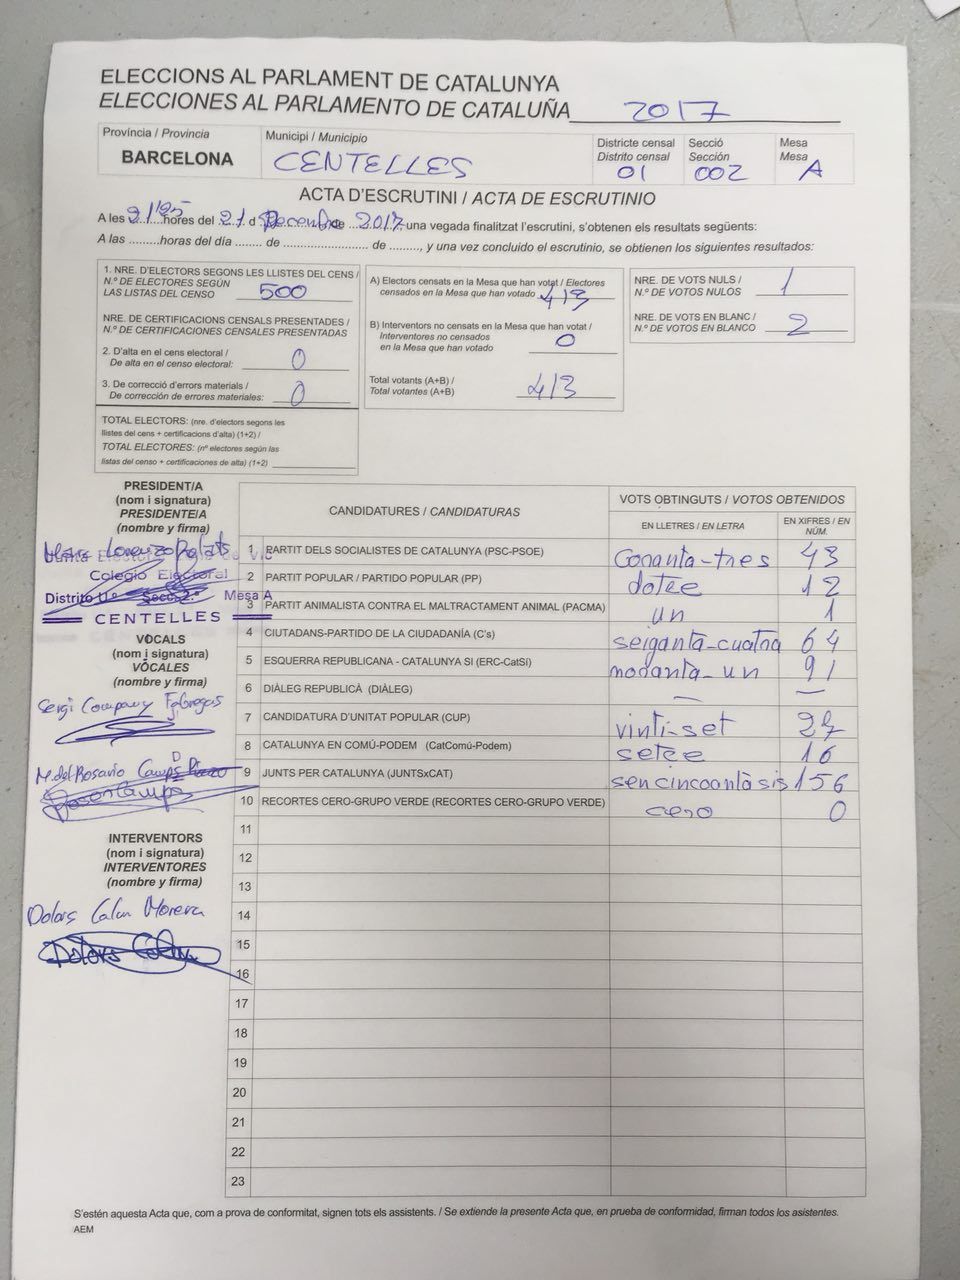 ELECCIONS AL PARLAMENT DE CATALUNYA
ELECCIONES AL PARLAMENTO DE CATALUÑA 2017
Província / Provincia
BARCELONA
Municipi / Municipio
CENTELLES
Districte censal
Distrito censal
01
Secció
Sección
002
Mesa
Mesa
A
ACTA D'ESCRUTINI / ACTA DE ESCRUTINIO
A les 21'25 hores del 21 d Decembre de 2017, una vegada finalitzat l'escrutini, s'obtenen els resultats següents:
A las .........horas del día ........ de ........................ de ........, y una vez concluido el escrutinio, se obtienen los siguientes resultados:
1. NRE. D'ELECTORS SEGONS LES LLISTES DEL CENS /
N.º DE ELECTORES SEGÚN
LAS LISTAS DEL CENSO 500
NRE. DE CERTIFICACIONS CENSALS PRESENTADES /
N.º DE CERTIFICACIONES CENSALES PRESENTADAS
2. D'alta en el cens electoral /
De alta en el censo electoral: 0
3. De correcció d'errors materials /
De corrección de errores materiales: 0
TOTAL ELECTORS: (nre. d'electors segons les
llistes del cens + certificacions d'alta) (1+2) /
TOTAL ELECTORES: (nº electores según las
listas del censo + certificaciones de alta) (1+2)
A) Electors censats en la Mesa que han votat / Electores
censados en la Mesa que han votado 413
B) Interventors no censats en la Mesa que han votat /
Interventores no censados
en la Mesa que han votado 0
Total votants (A+B) /
Total votantes (A+B) 413
NRE. DE VOTS NULS /
N.º DE VOTOS NULOS 1
NRE. DE VOTS EN BLANC /
N.º DE VOTOS EN BLANCO 2
PRESIDENT/A
(nom i signatura)
PRESIDENTE/A
(nombre y firma)
Junta Electoral de Vic
Colegio Electoral
Distrito 1.º Secc. 2.ª Mesa A
CENTELLES
VOCALS
(nom i signatura)
VOCALES
(nombre y firma)
Sergi Company Fabregas
M. del Rosario
INTERVENTORS
(nom i signatura)
INTERVENTORES
(nombre y firma)
Dolors
Dolors
CANDIDATURES / CANDIDATURAS
VOTS OBTINGUTS / VOTOS OBTENIDOS
EN LLETRES / EN LETRA
EN XIFRES / EN NÚM.
1 PARTIT DELS SOCIALISTES DE CATALUNYA (PSC-PSOE) Coranta-tres 43
2 PARTIT POPULAR / PARTIDO POPULAR (PP) dotze 12
3 PARTIT ANIMALISTA CONTRA EL MALTRACTAMENT ANIMAL (PACMA) un 1
4 CIUTADANS-PARTIDO DE LA CIUDADANÍA (C's) seiganta-cuatra 64
5 ESQUERRA REPUBLICANA - CATALUNYA SI (ERC-CatSí) nodanta-un 91
6 DIÀLEG REPUBLICÀ (DIÀLEG) — —
7 CANDIDATURA D'UNITAT POPULAR (CUP) vinti-set 27
8 CATALUNYA EN COMÚ-PODEM (CatComú-Podem) setze 16
9 JUNTS PER CATALUNYA (JUNTSxCAT) sen cincoantà sis 156
10 RECORTES CERO-GRUPO VERDE (RECORTES CERO-GRUPO VERDE) cero 0
11
12
13
14
15
16
17
18
19
20
21
22
23
S'estén aquesta Acta que, com a prova de conformitat, signen tots els assistents. / Se extiende la presente Acta que, en prueba de conformidad, firman todos los asistentes.
AEM